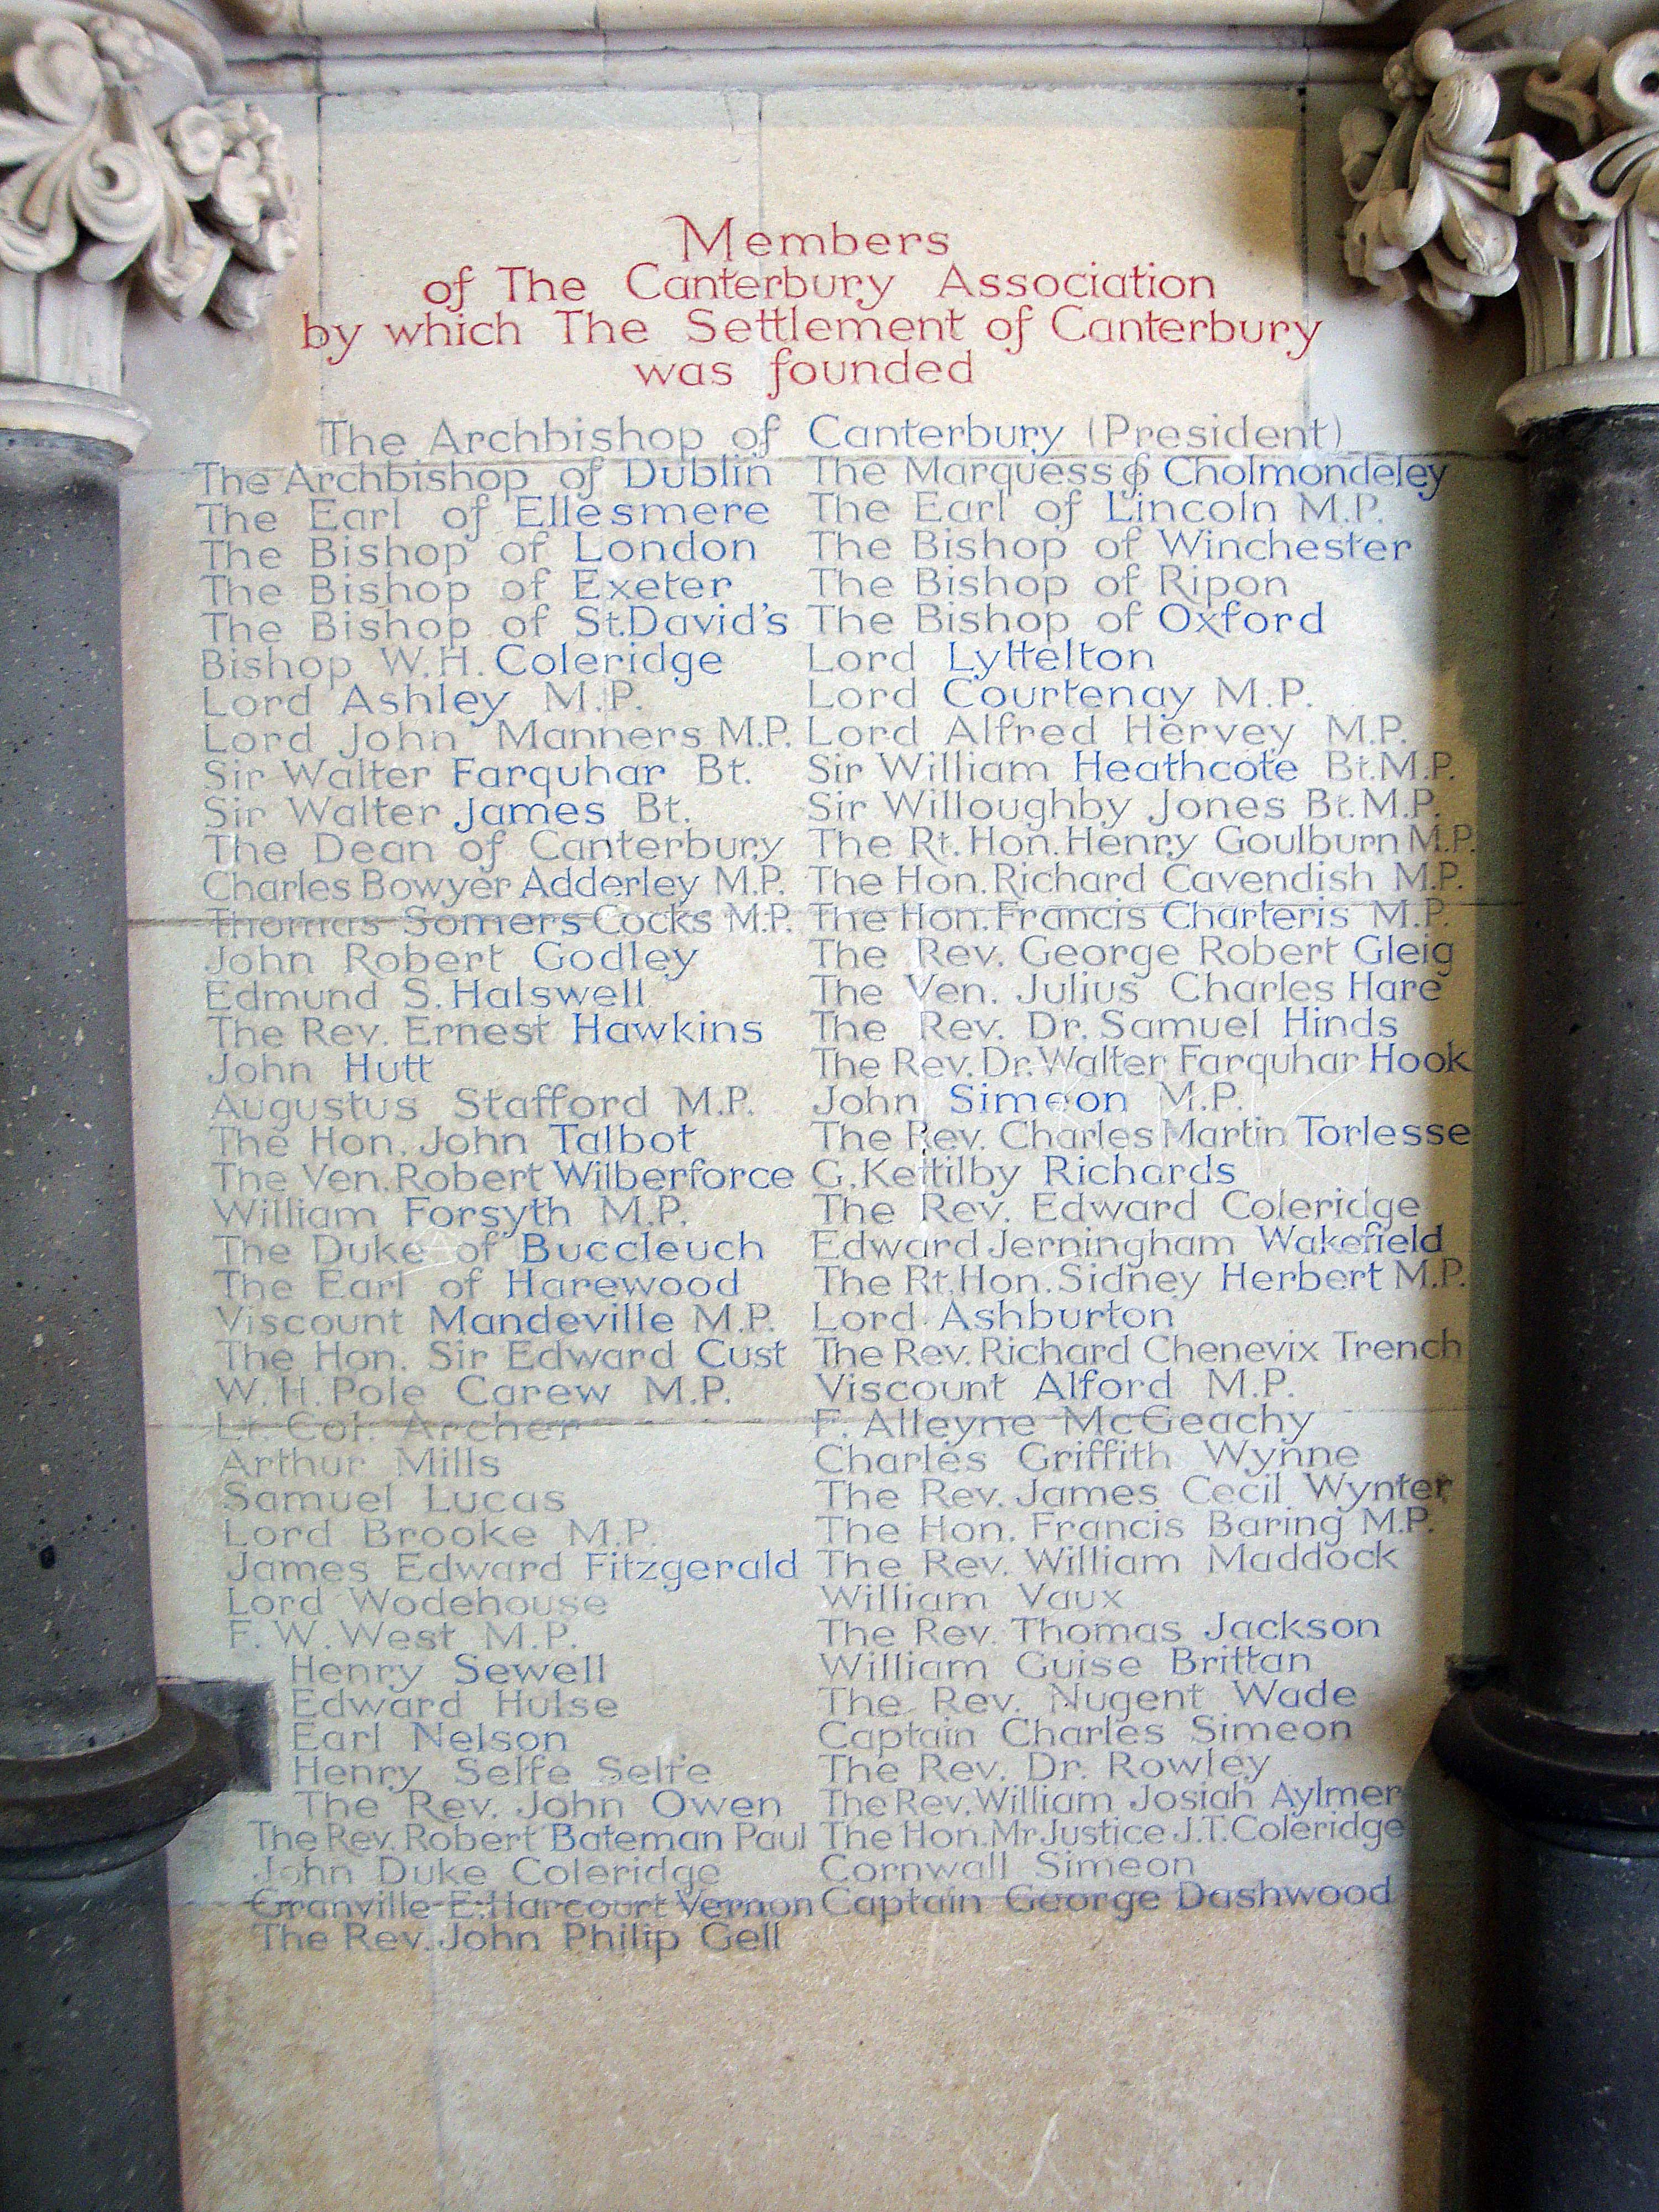 Members
of The Canterbury Association
by which The Settlement of Canterbury
was founded
The Archbishop of Canterbury (President)
The Archbishop of Dublin The Marquess of Cholmondeley
The Earl of Ellesmere The Earl of Lincoln M.P.
The Bishop of London The Bishop of Winchester
The Bishop of Exeter The Bishop of Ripon
The Bishop of St.David's The Bishop of Oxford
Bishop W.H. Coleridge Lord Lyttelton
Lord Ashley M.P. Lord Courtenay M.P.
Lord John Manners M.P. Lord Alfred Hervey M.P.
Sir Walter Farquhar Bt. Sir William Heathcote Bt.M.P.
Sir Walter James Bt. Sir Willoughby Jones Bt.M.P.
The Dean of Canterbury The Rt.Hon.Henry Goulburn M.P.
Charles Bowyer Adderley M.P. The Hon.Richard Cavendish M.P.
Thomas Somers Cocks M.P. The Hon.Francis Charteris M.P.
John Robert Godley The Rev. George Robert Gleig
Edmund S.Halswell The Ven. Julius Charles Hare
The Rev. Ernest Hawkins The Rev. Dr. Samuel Hinds
John Hutt The Rev.Dr.Walter Farquhar Hook
Augustus Stafford M.P. John Simeon M.P.
The Hon. John Talbot The Rev. Charles Martin Torlesse
The Ven.Robert Wilberforce G.Kettilby Richards
William Forsyth M.P. The Rev. Edward Coleridge
The Duke of Buccleuch Edward Jerningham Wakefield
The Earl of Harewood The Rt.Hon.Sidney Herbert M.P.
Viscount Mandeville M.P. Lord Ashburton
The Hon. Sir Edward Cust The Rev. Richard Chenevix Trench
W.H.Pole Carew M.P. Viscount Alford M.P.
Lt. Col. Archer F. Alleyne McGeachy
Arthur Mills Charles Griffith Wynne
Samuel Lucas The Rev. James Cecil Wynter
Lord Brooke M.P. The Hon. Francis Baring M.P.
James Edward Fitzgerald The Rev. William Maddock
Lord Wodehouse William Vaux
F.W.West M.P. The Rev. Thomas Jackson
Henry Sewell William Guise Brittan
Edward Hulse The Rev. Nugent Wade
Earl Nelson Captain Charles Simeon
Henry Selfe Selfe The Rev. Dr. Rowley
The Rev. John Owen The Rev.William Josiah Aylmer
The Rev. Robert Bateman Paul The Hon.Mr Justice J.T.Coleridge
John Duke Coleridge Cornwall Simeon
Granville E.Harcourt Vernon Captain George Dashwood
The Rev. John Philip Gell